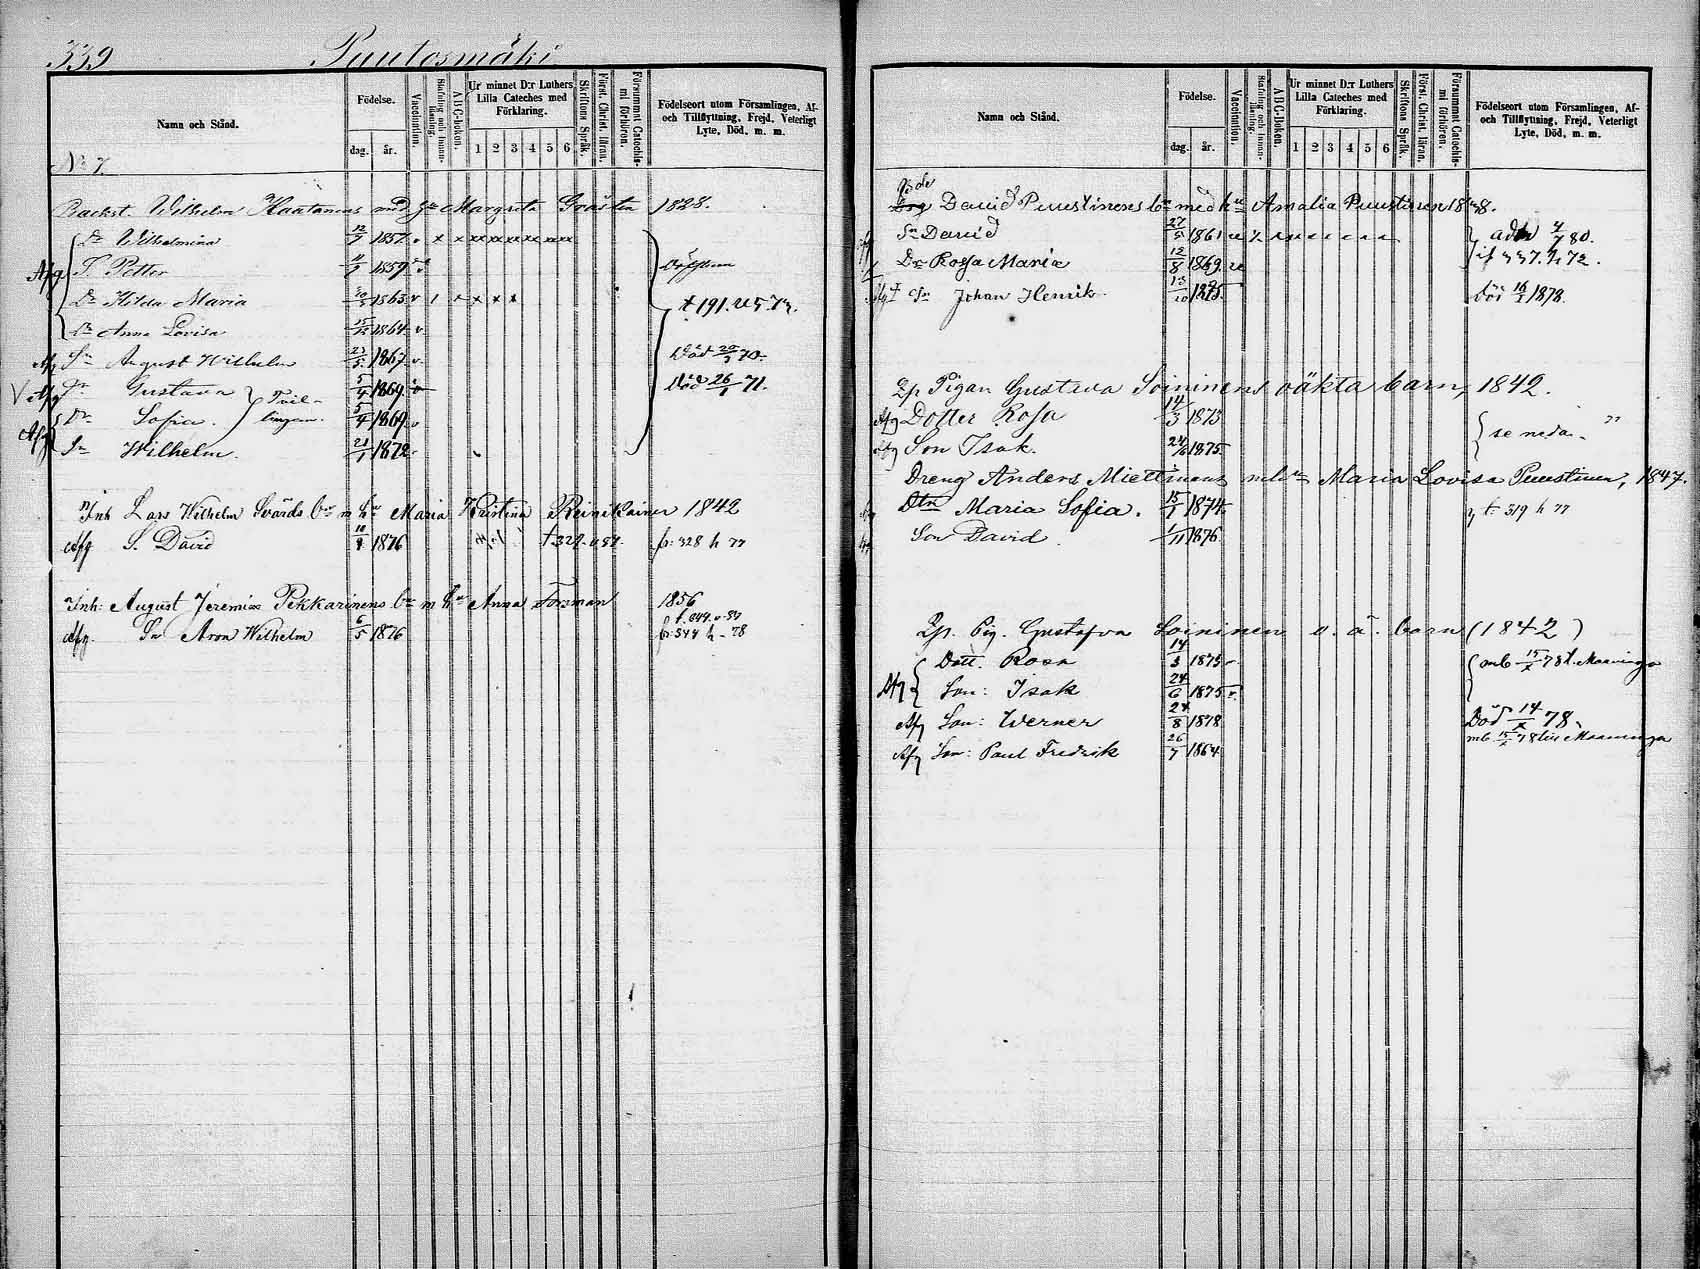 339 Puutosmäki
Namn och Stånd. Födelse. dag. år. Vaccination. Stafning och innanläsning. A B C-boken. Ur minnet D:r Luthers Lilla Cateches med Förklaring. 1 2 3 4 5 6 Skriftens Språk. Först. Christ. läran. Försummt Catechismi förhören. Födelseort utom Församlingen, Af- och Tillflyttning, Frejd, Veterligt Lyte, Död, m. m.
No 7
Backst. Wilhelm Haatanens med hu Margreta Gråsten 1828.
Dr Wilhelmina 12/7 1857
Afg S. Petter 1859
Dr Hilda Maria 1863 t 191. u 5. 73.
Dr Anna Lovisa 1864 v
Afg Sn August Wilhelm 23/5 1867 v Död 70.
V Afg Dr Gustava 5/4 1869 Tvil- Död 26/ 71.
Afg Dr Sofia. 5/4 1869 v lingar.
Sn Wilhelm. 21/1 1872
Inh Lars Wilhelm Svärds bn m hu Maria Kristina Reinikainen 1842
Afg S. David 10/ 1876 fr: 328 h 77
Inh: August Jeremias Pekkarinens bn m hu Anna Forsman 1856
Afg. Sn Aron Wilhelm 6/5 1876 fr: 344 h - 78
Namn och Stånd. Födelse. dag. år. Vaccination. Stafning och innanläsning. A B C-boken. Ur minnet D:r Luthers Lilla Cateches med Förklaring. 1 2 3 4 5 6 Skriftens Språk. Först. Christ. läran. Försummt Catechismi förhören. Födelseort utom Församlingen, Af- och Tillflyttning, Frejd, Veterligt Lyte, Död, m. m.
David Puustinens bn med hu Amalia Puustinen
Sn David 27/5 1861 80.
Dr Rosa Maria 12/8 1869 337. h 72.
Sn Johan Henrik 13/10 1875 Död 16/ 1878.
Lp Pigan Gustava Soininens oäkta barn, 1842.
Afg Dotter Rosa 14/3 1873 se neda-
Afg Son Isak. 24/6 1875
Dreng Anders Miettinens m hu Maria Lovisa Puustinen, 1847.
Dtr Maria Sofia. 15/ 1874 t. 319 h 77
Son David 1/11 1876
Lp. Pig. Gustafva Soininen o. ä. barn (1842)
Dott. Rosa 14/3 1873 mb 15/X 78 t. Maaninga
Afg Son: Isak 24/6 1875 v.
Afg Son: Werner 24/8 1878 Död 14/X 78.
Afg Son: Paul Fredrik 26/7 1864 mb 15/X 78 till Maaninga